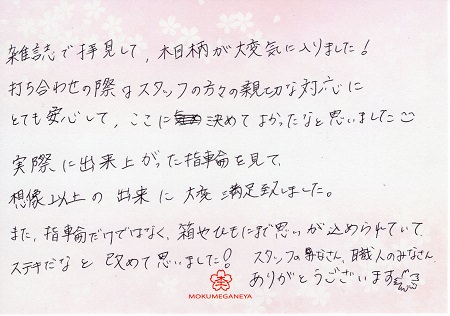 雑誌で拝見して、木目柄が大変気に入りました!
打ち合わせの際はスタッフの方々の親切な対応に
とても安心して、ここに決めてよかったなと思いました
実際に出来上がった指輪を見て、
想像以上の出来に大変満足致しました。
また、指輪だけではなく、箱やひもにまで思いが込められていて
ステキだなと改めて思いました! スタッフの皆なさん、職人のみなさん
ありがとうございます
MOKUMEGANEYA